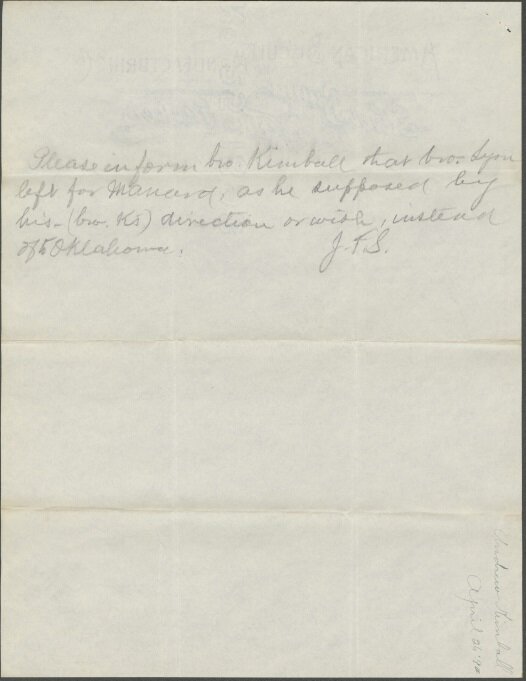 Please inform bro. Kimball that bro. Lyon
left for Manard, as he supposed by
his - (bro. Ks) direction or wish, instead
of to Oklahoma. J.F.S.
Andrew Kimball
April 26 '92
AMERICAN
MANUFACTURING Co